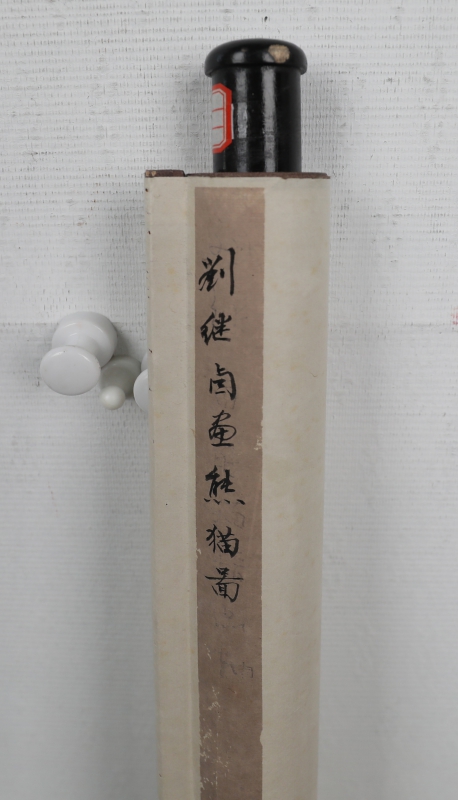 劉继卣画熊猫图